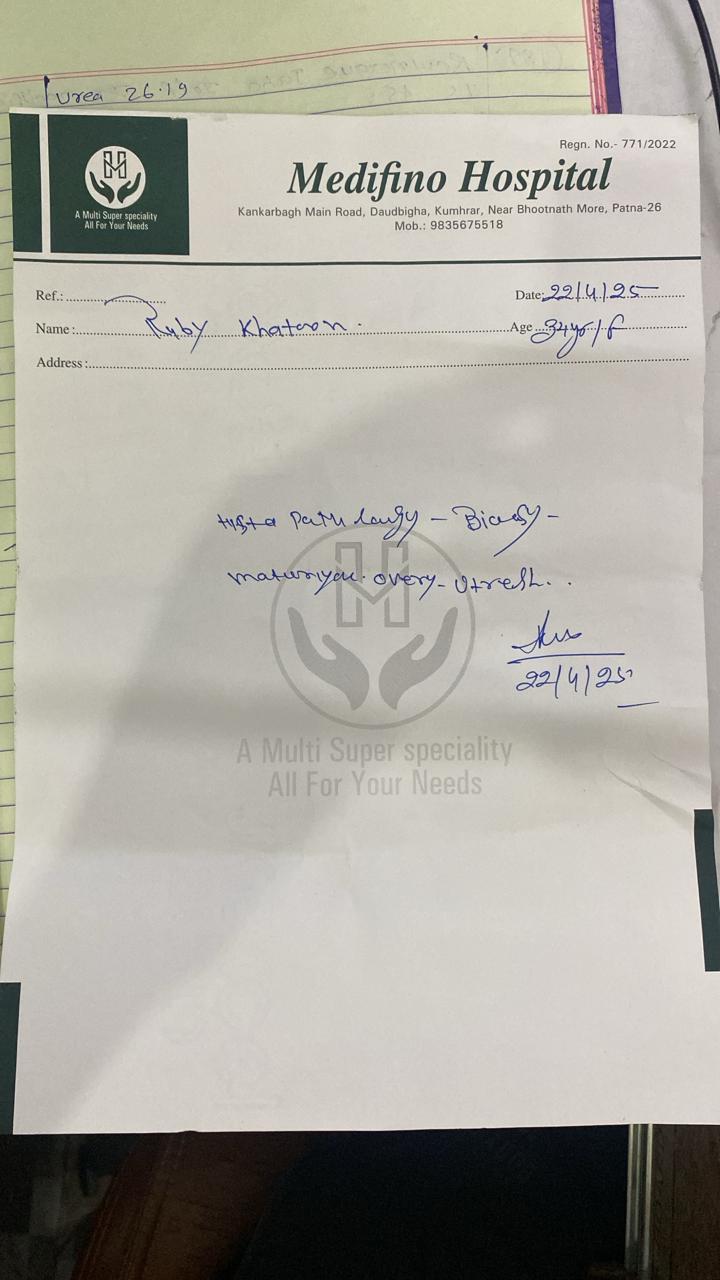 Urea 26.19
Regn. No.- 771/2022
Medifino Hospital
A Multi Super speciality
All For Your Needs
Kankarbagh Main Road, Daudbigha, Kumhrar, Near Bhootnath More, Patna-26
Mob.: 9835675518
Ref.:
Date: 22/4/25
Name: Ruby Khatoon.
Age 34yr/F
Address:
Path
overy-
22/4/25
A Multi Super speciality
All For Your Needs